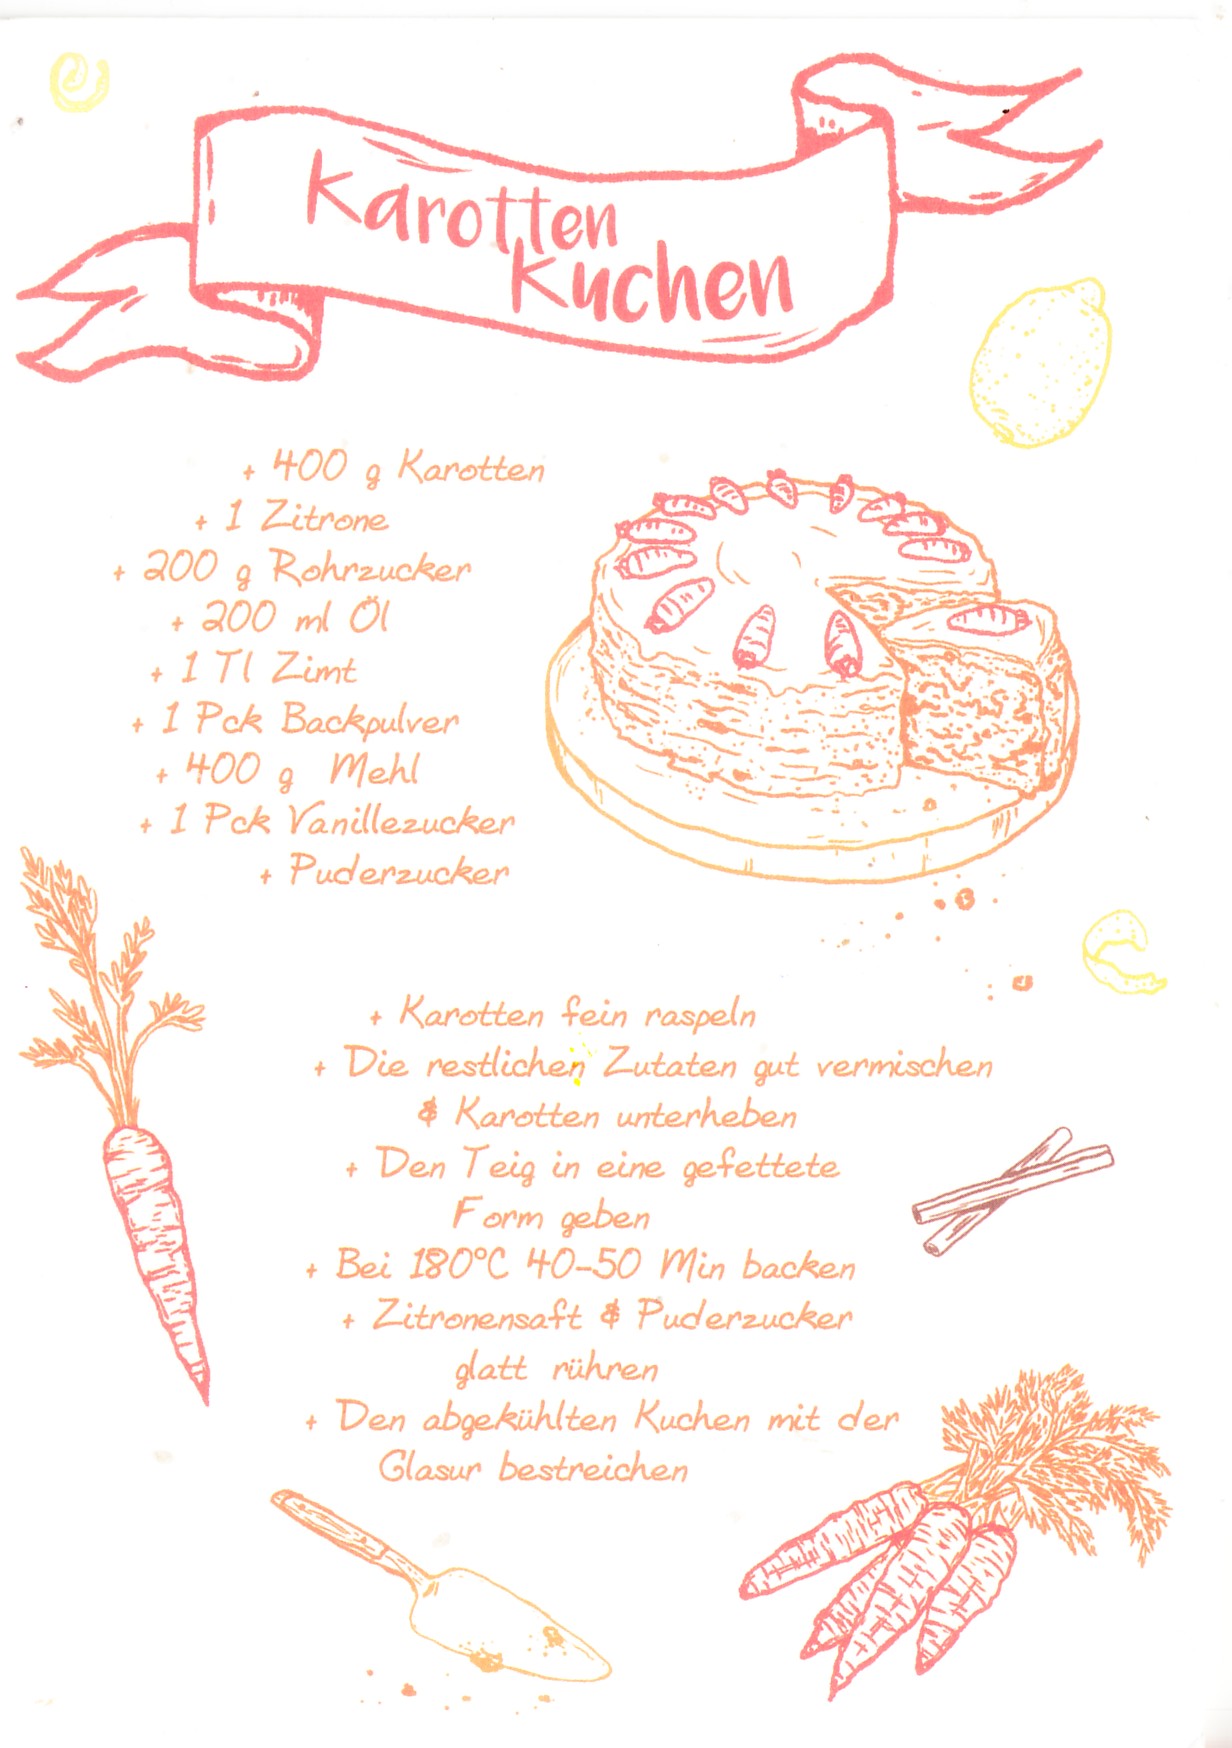 Karotten
Kuchen
+ 400 g Karotten
+ 1 Zitrone
+ 200 g Rohrzucker
+ 200 ml Öl
+ 1 Tl Zimt
+ 1 Pck Backpulver
+ 400 g Mehl
+ 1 Pck Vanillezucker
+ Puderzucker
+ Karotten fein raspeln
+ Die restlichen Zutaten gut vermischen
& Karotten unterheben
+ Den Teig in eine gefettete
Form geben
+ Bei 180°C 40-50 Min backen
+ Zitronensaft & Puderzucker
glatt rühren
+ Den abgekühlten Kuchen mit der
Glasur bestreichen